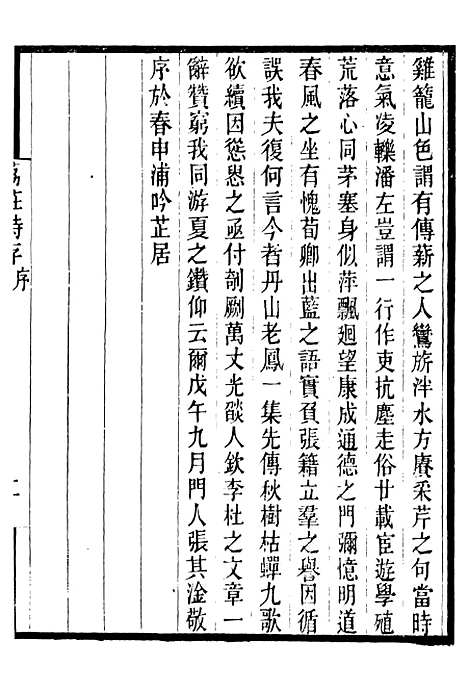 雞籠山色謂有傳薪之人鸞旂泮水方賡采芹之句當時
意氣凌轢潘左豈謂一行作吏抗塵走俗廿載宦遊學殖
荒落心同茅塞身似萍飄迴望康成通德之門彌憶明道
春風之坐有愧荀卿出藍之語實負張籍立羣之譽因循
誤我夫復何言今者丹山老鳳一集先傳秋樹枯蟬九歌
欲續因慫恿之亟付剞劂萬丈光燄人欽李杜之文章一
辭贊窮我同游夏之鑽仰云爾戊午九月門人張其淦敬
序於春申浦吟芷居
荔莊詩存序
二